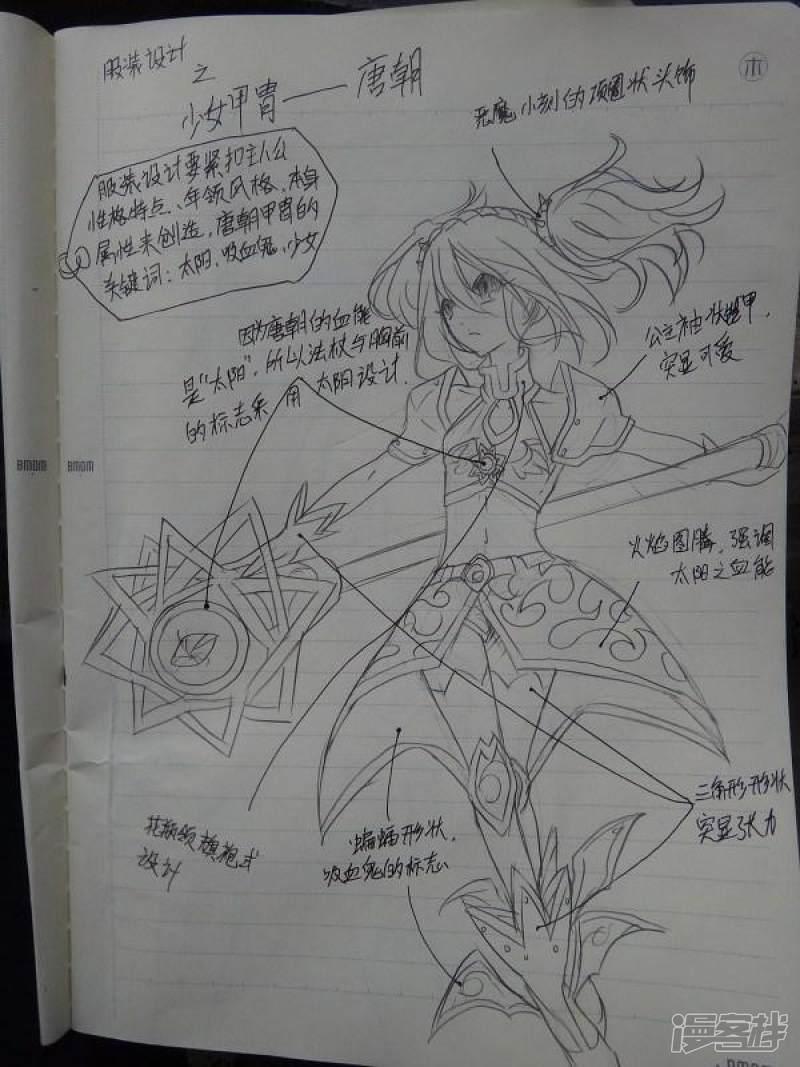 服装设计
之
少女甲胄——唐朝
木
恶魔小刻伪项圈状头饰
服装设计要紧扣主人公
性格特点、年领风格、本身
属性来创造，唐朝甲胄的
关键词：太阳、吸血鬼、少女
因为唐朝的血能
是“太阳”，所以法杖与胸前
的标志采用太阳设计.
公主袖状铠甲，
突显可爱
火焰图腾，强调
太阳之血能
三角形形状
突显张力
花瓶领旗袍式
设计
蝙蝠形状，
吸血鬼的标志
BMDM
BMDM
漫客栈